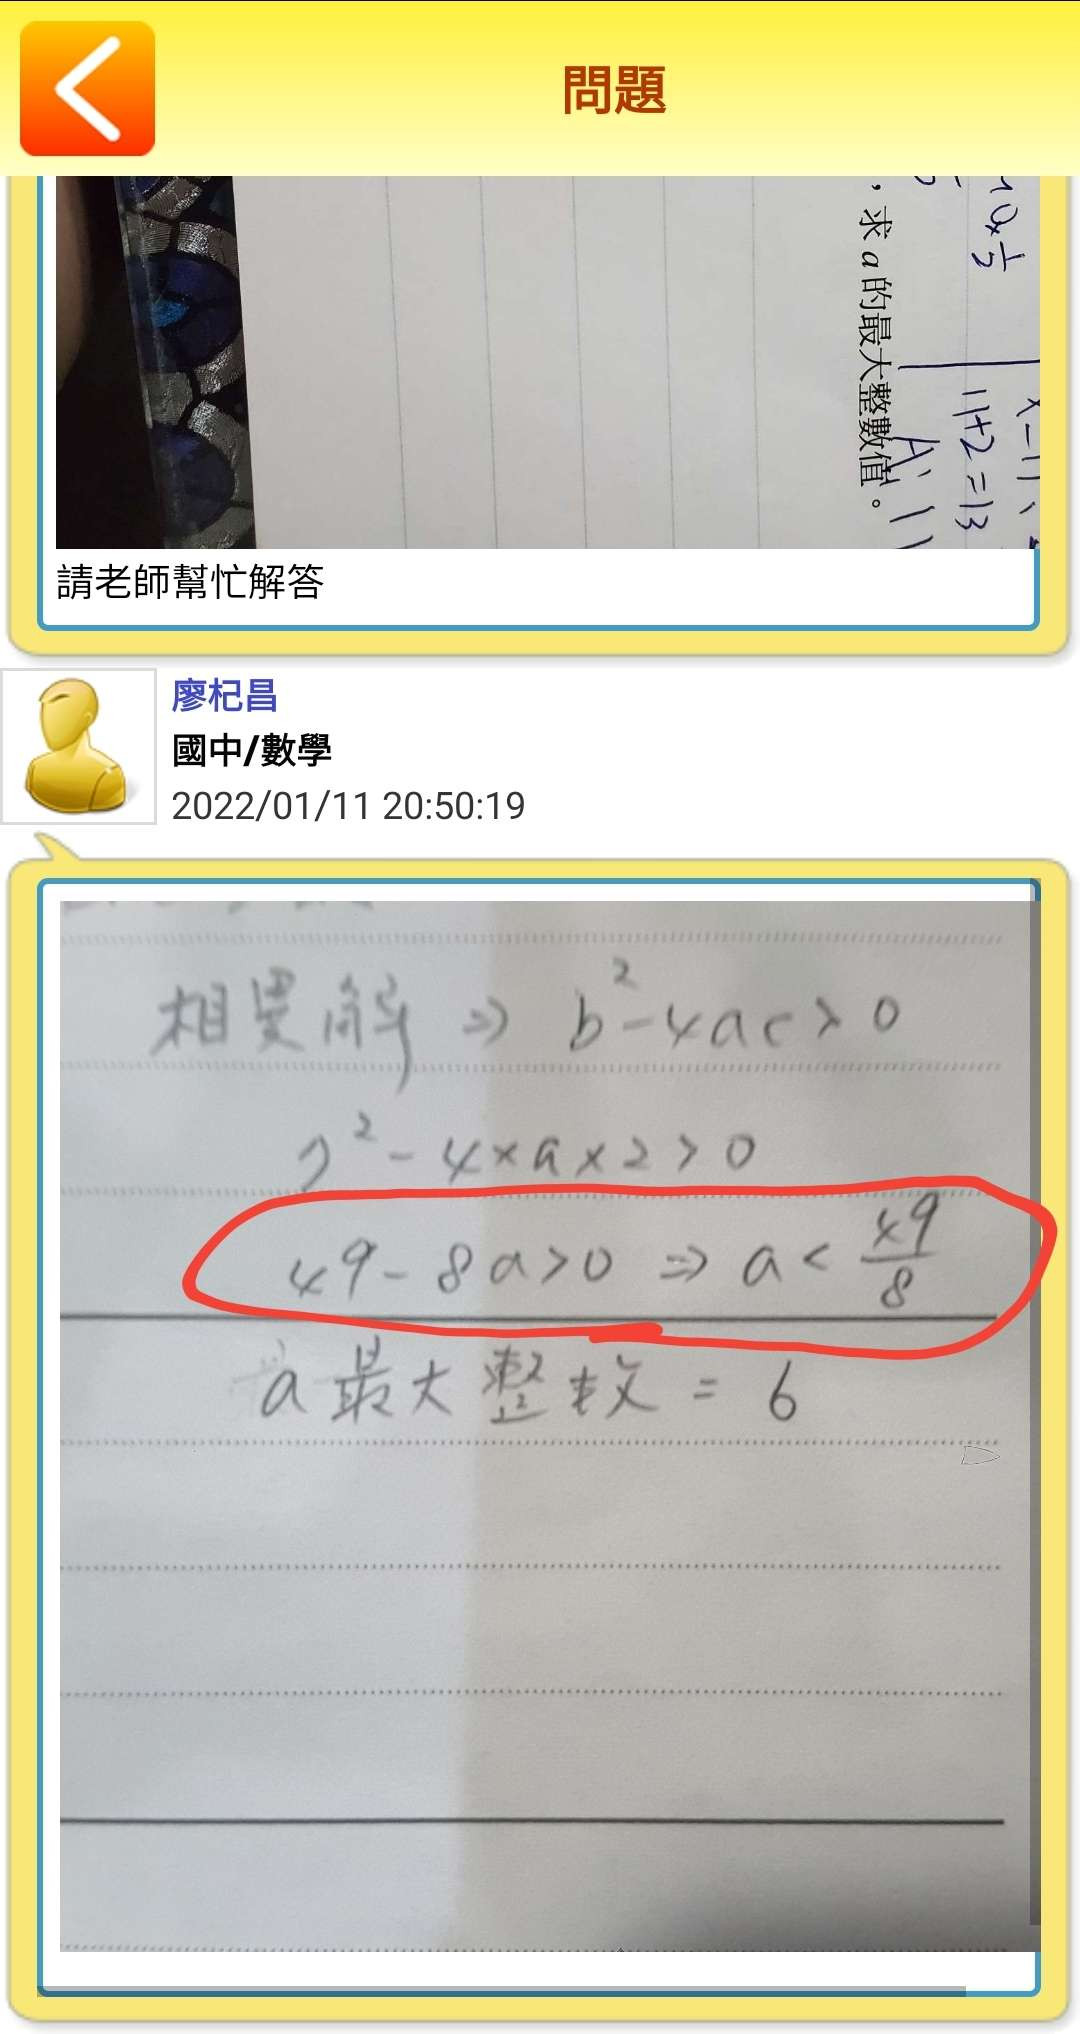 問題
10x½
，求a的最大整數值。
11+2=13
A、11
請老師幫忙解答
廖杞昌
國中/數學
2022/01/11 20:50:19
相異解 ⇒ b²-4ac>0
7²-4×a×2>0
49-8a>0 ⇒ a<49/8
a最大整数=6